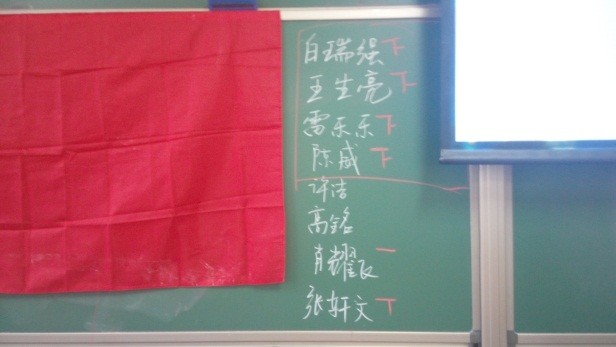 白瑞强 下
王生亮 下
雷乐乐 下
陈威 下
许洁
高铭
肖耀辰 一
张轩文 下